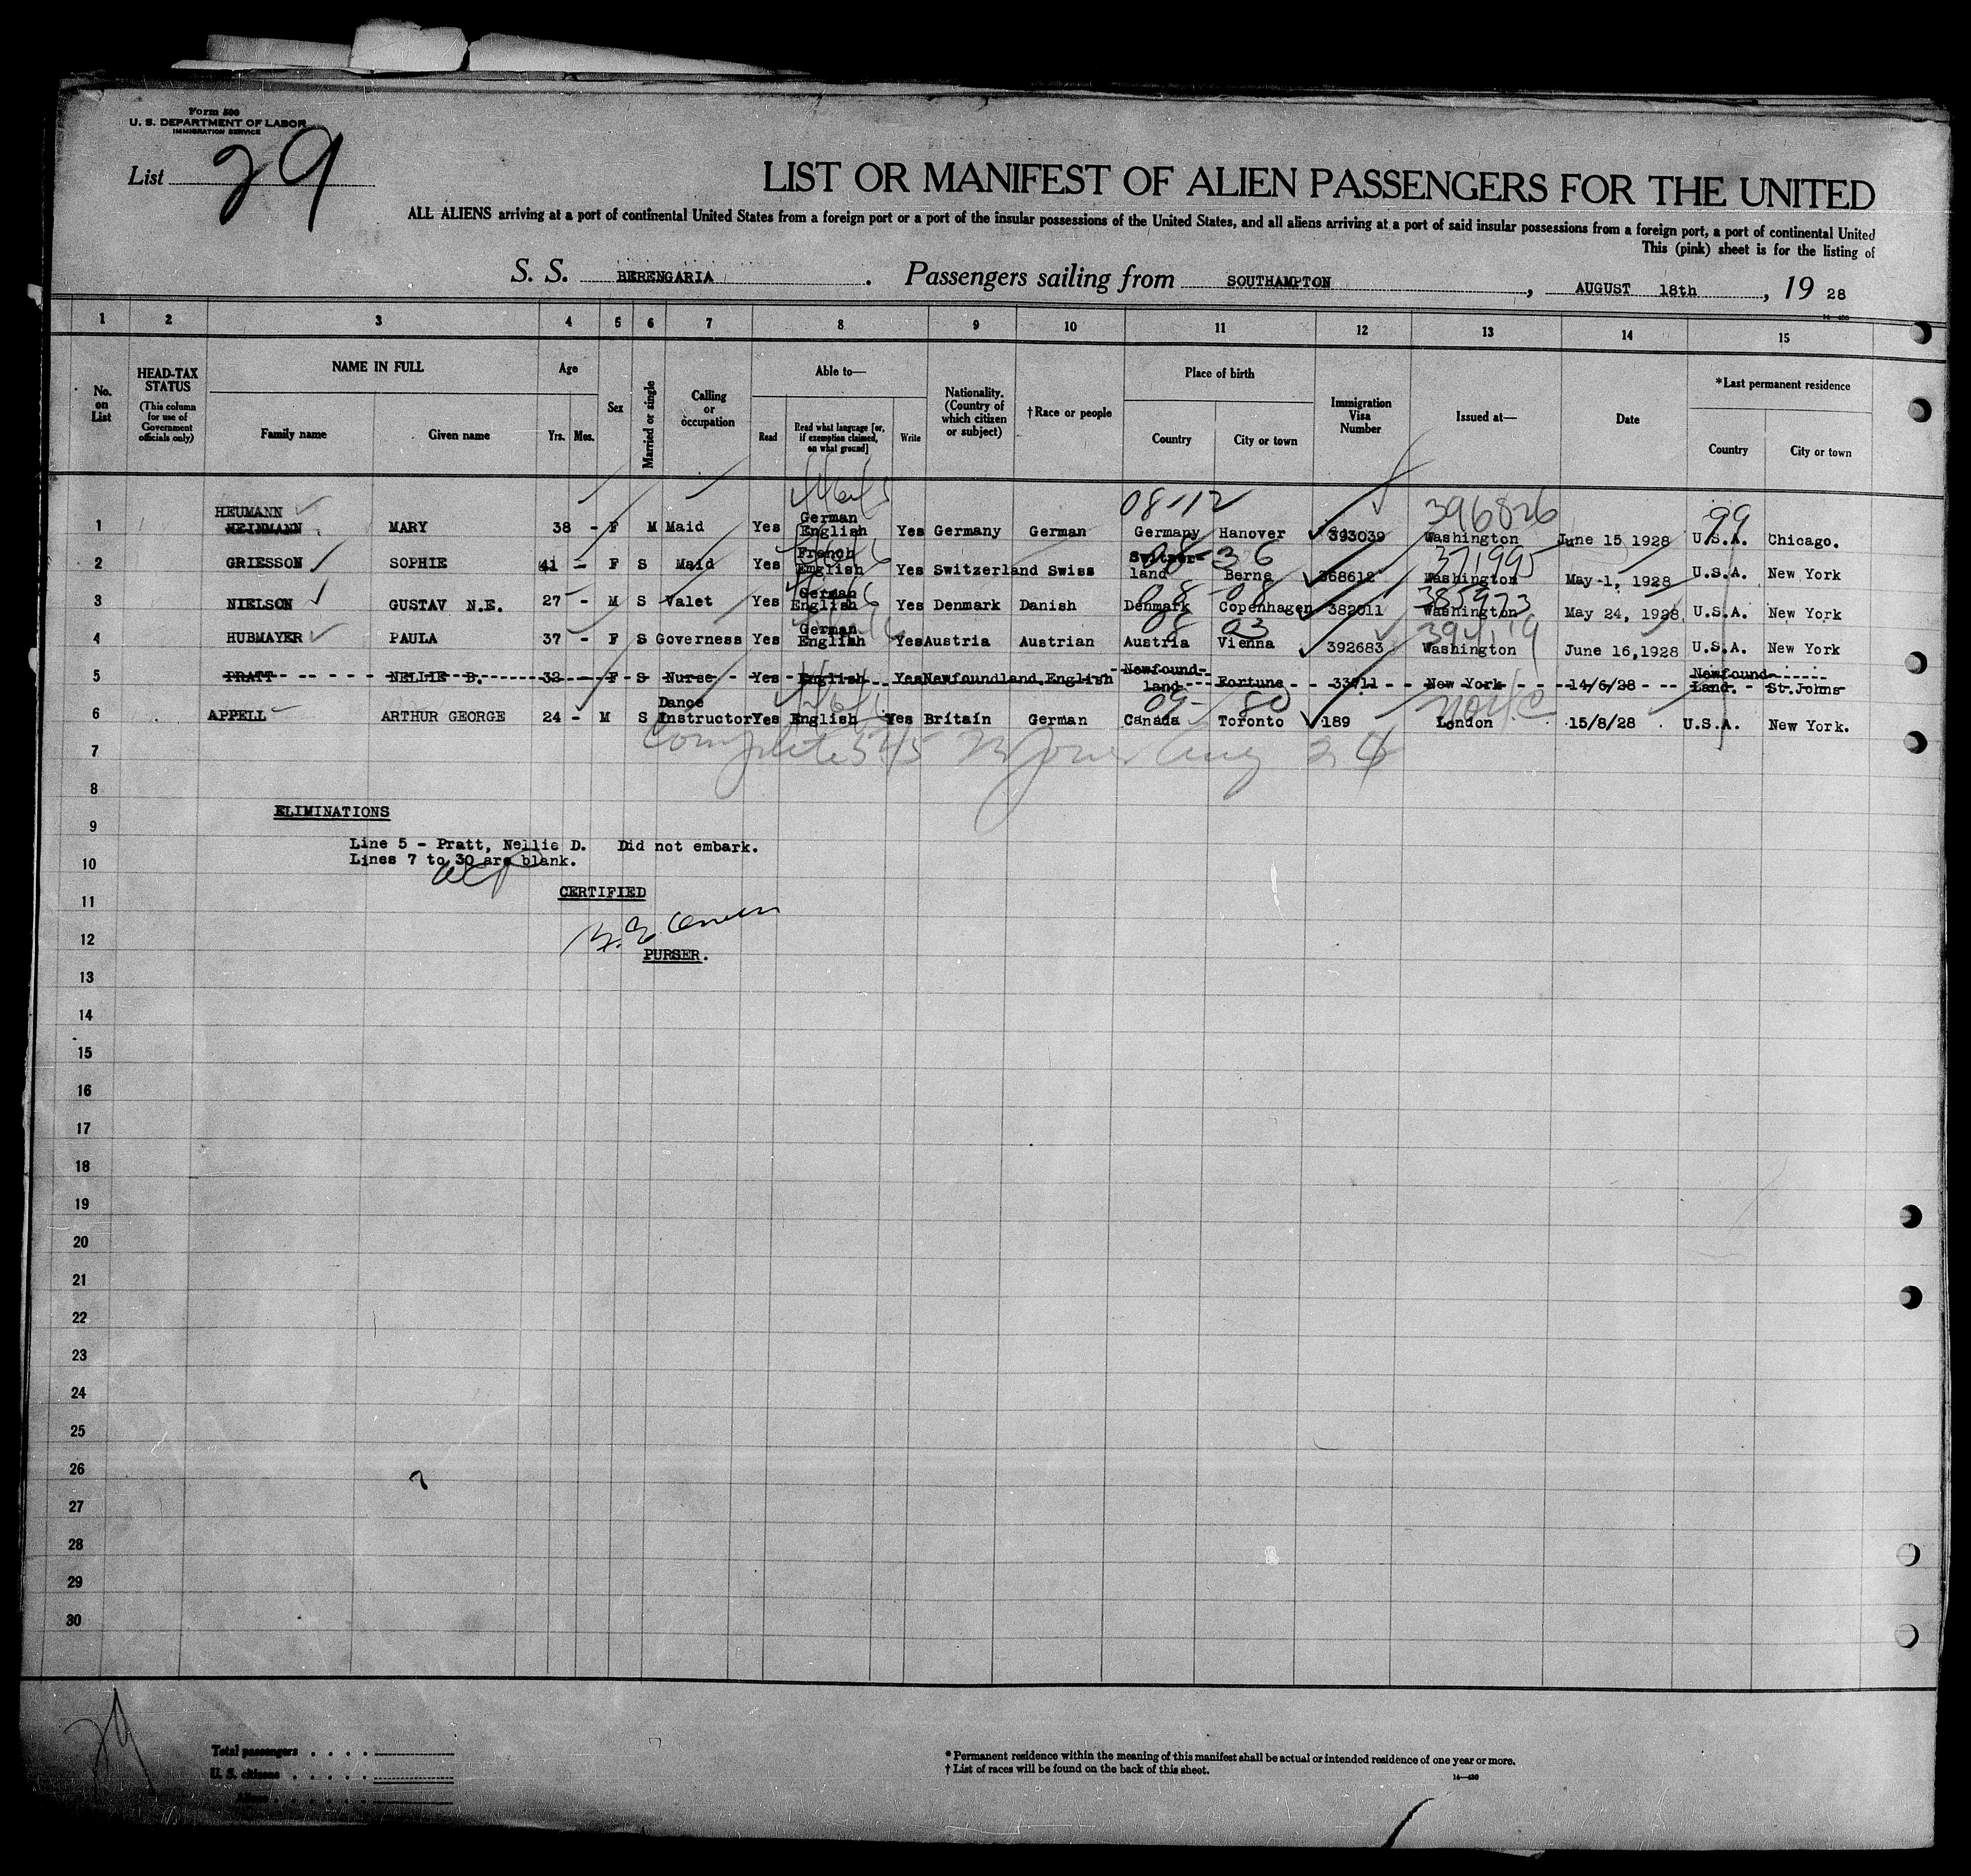 Form 500
U. S. DEPARTMENT OF LABOR
IMMIGRATION SERVICE
List 29
LIST OR MANIFEST OF ALIEN PASSENGERS FOR THE UNITED
ALL ALIENS arriving at a port of continental United States from a foreign port or a port of the insular possessions of the United States, and all aliens arriving at a port of said insular possessions from a foreign port, a port of continental United
This (pink) sheet is for the listing of
S. S. BERENGARIA. Passengers sailing from SOUTHAMPTON, AUGUST 18th, 19 28
1 2 3 4 5 6 7 8 9 10 11 12 13 14 15
No. on List
HEAD-TAX STATUS (This column for use of Government officials only)
NAME IN FULL
Family name Given name
Age
Yrs. Mos.
Sex
Married or single
Calling or occupation
Able to—
Read Read what language [or, if exemption claimed, on what ground] Write
Nationality. (Country of which citizen or subject)
†Race or people
Place of birth
Country City or town
Immigration Visa Number
Issued at—
Date
*Last permanent residence
Country City or town
08-12 396826 99
1 HEUMANN HEINMANN MARY 38 - F M Maid Yes German English Yes Germany German Germany Hanover 393039 Washington June 15, 1928 U.S.A. Chicago.
08-36 371995
2 GRIESSON SOPHIE 41 - F S Maid Yes French English Yes Switzerland Swiss Switzer-land Berne 368612 Washington May 1, 1928 U.S.A. New York
08-08 385973
3 NIELSON GUSTAV N.E. 27 - M S Valet Yes German English Yes Denmark Danish Denmark Copenhagen 382011 Washington May 24, 1928 U.S.A. New York
08 03
4 HUBMAYER PAULA 37 - F S Governess Yes German English Yes Austria Austrian Austria Vienna 392683 Washington June 16,1928 U.S.A. New York
5 PRATT NELLIE D. 32 - F S Nurse Yes English Yes Newfoundland English Newfound-land Fortune New York 14/6/28 Newfound-Land. St.Johns
09- 80
6 APPELL ARTHUR GEORGE 24 - M S Dance Instructor Yes English Yes Britain German Canada Toronto 189 London 15/8/28 U.S.A. New York.
7
8
ELIMINATIONS
9
Line 5 - Pratt, Nellie D. Did not embark.
10 Lines 7 to 30 are blank.
CERTIFIED
11
12
PURSER.
13
14
15
16
17
18
19
20
21
22
23
24
25
26
27
28
29
30
29
Total passengers
U. S. citizens
Aliens
* Permanent residence within the meaning of this manifest shall be actual or intended residence of one year or more.
† List of races will be found on the back of this sheet.